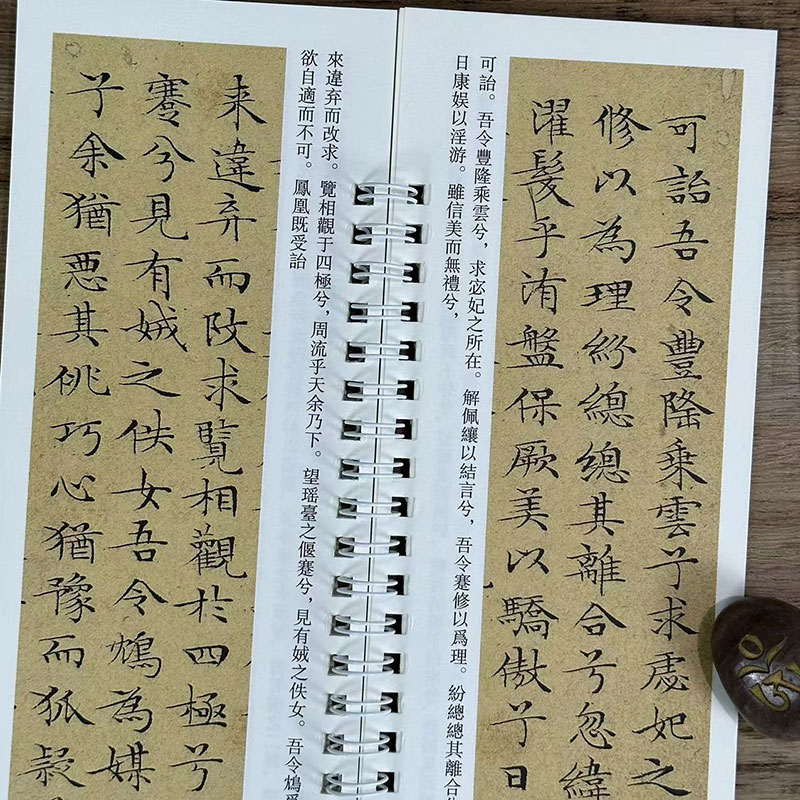 可詒吾令豐隆乘雲兮求虙妃之
修以為理紛總總其離合兮忽緯
濯髮乎洧盤保厥美以驕傲兮日
可詒。吾令豐隆乘雲兮，求宓妃之所在。解佩纕以結言兮，吾令蹇修以爲理。紛總總其離合兮
日康娱以淫游。雖信美而無禮兮，
來違弃而改求。覽相觀于四極兮，周流乎天余乃下。望瑶臺之偃蹇兮，見有娀之佚女。吾令鴆爲
欲自適而不可。鳳凰既受詒
来違弃而改求覽相觀於四極兮
蹇兮見有娀之佚女吾令鴆為媒
兮余猶惡其佻巧心猶豫而狐疑